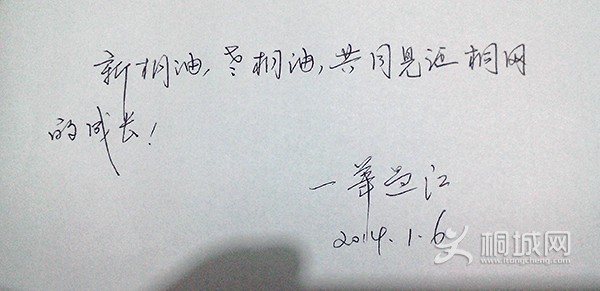 新桐油,老桐油,共同见证桐网
的成长!
一苇过江
2014.1.6
桐城网
www.tongcheng.com